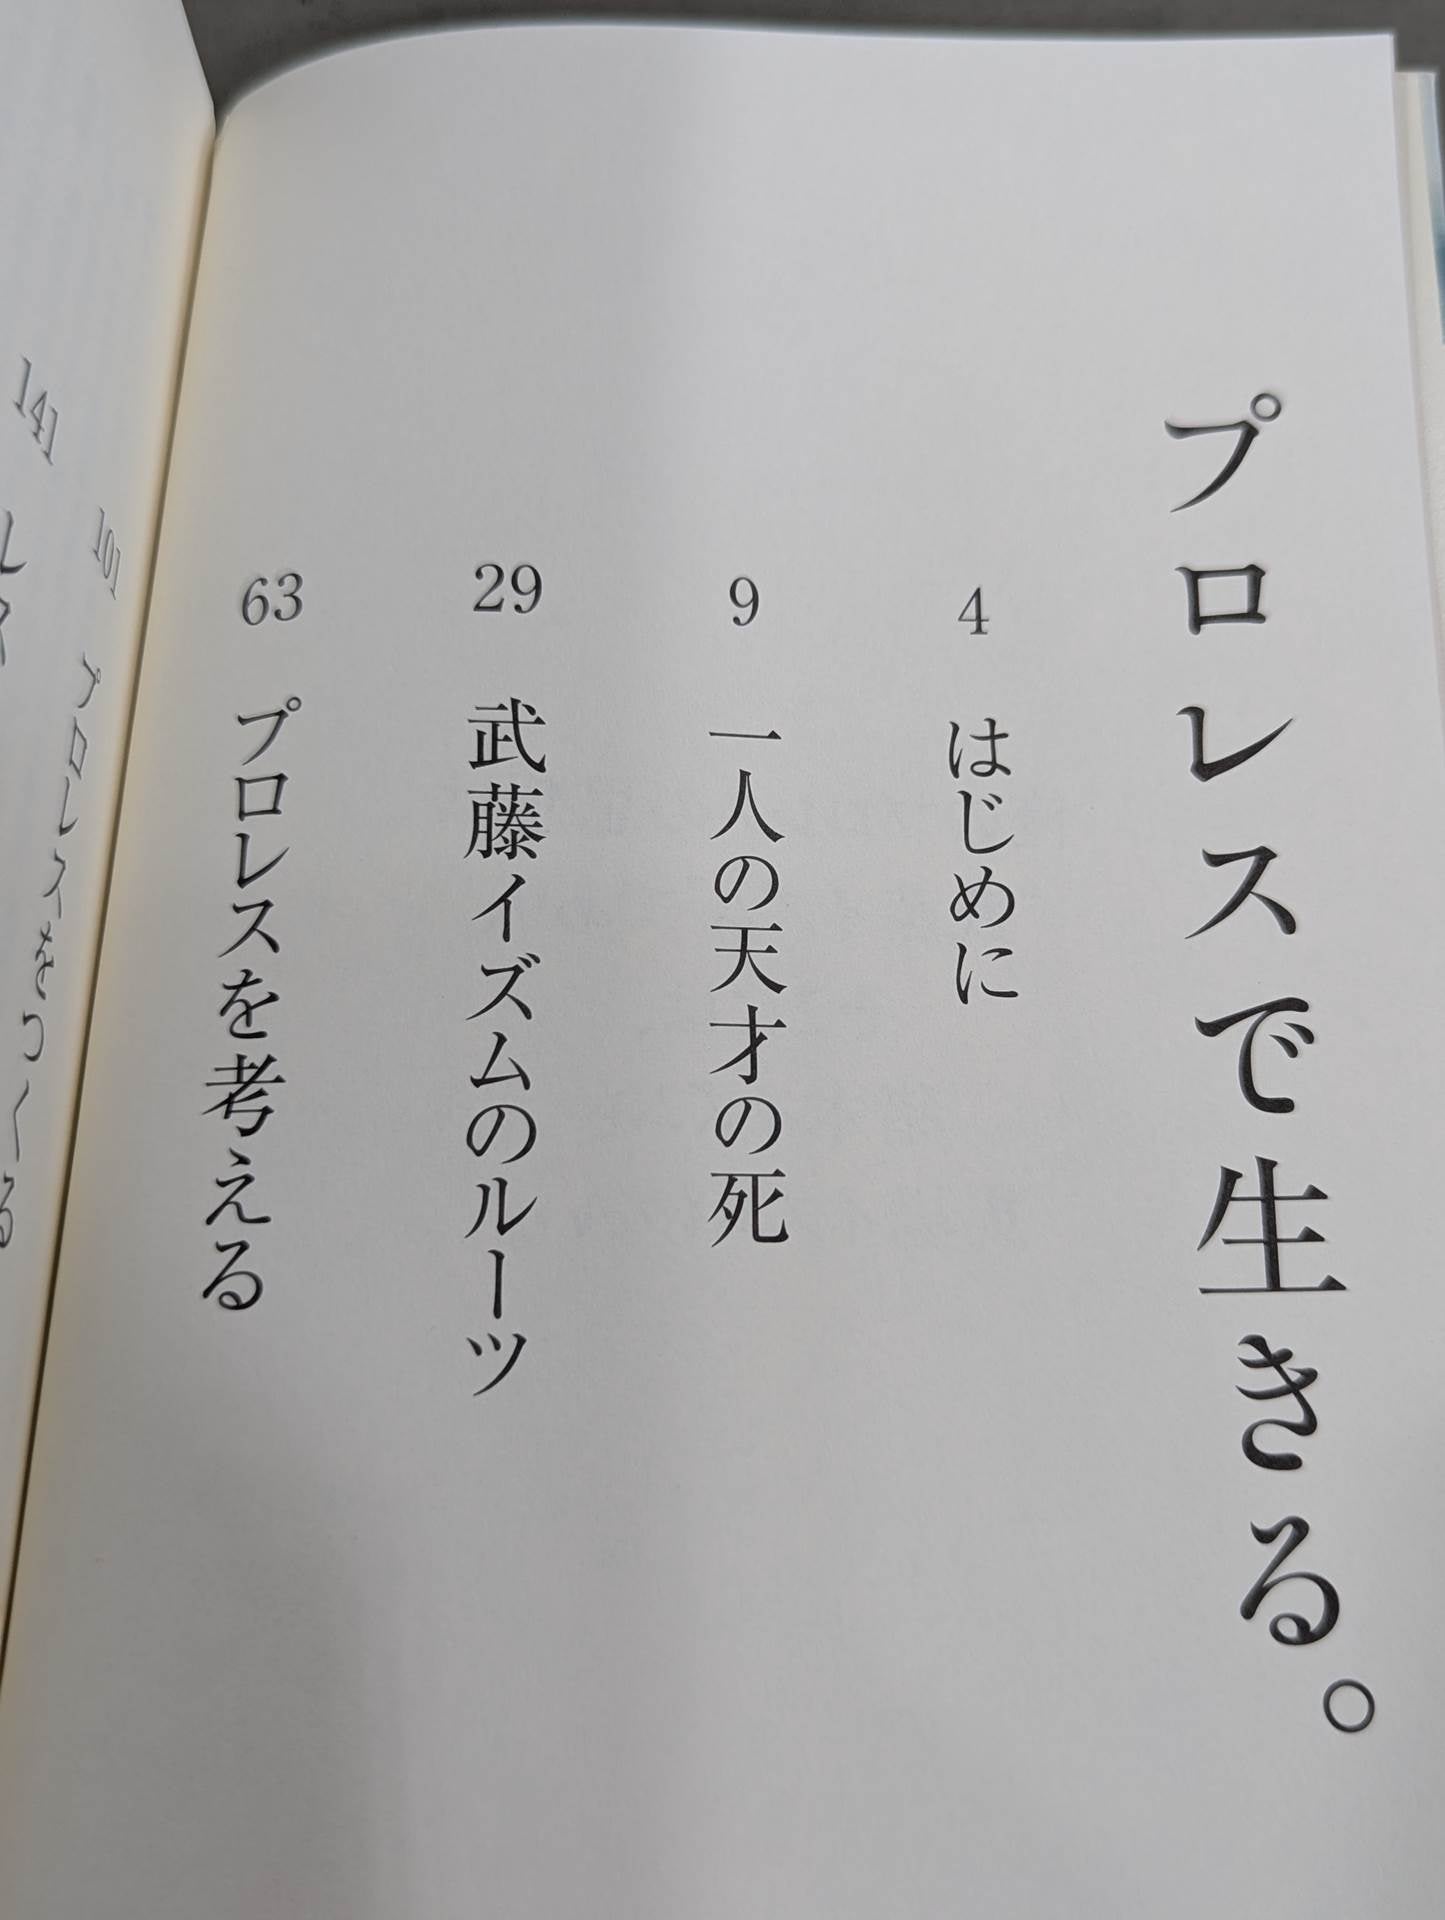 プロレスで生きる。
4 はじめに
9 一人の天才の死
29 武藤イズムのルーツ
63 プロレスを考える
101 プロレスをつくる
141